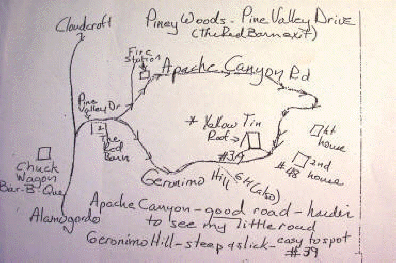 Cloudcroft
Piney Woods - Pine Valley Drive
(The Red Barn exit)
Fire
Station
Apache Canyon Rd
Pine
Valley Dr
The
Red
Barn
* Yellow Tin
Roof
#39
1st
house
2nd
house
#48
Chuck
Wagon
Bar-B-Que
Geronimo Hill
Alamogordo
Apache Canyon - good road - harder
to see my little road
Geronimo Hill - steep & slick - easy to spot
#39